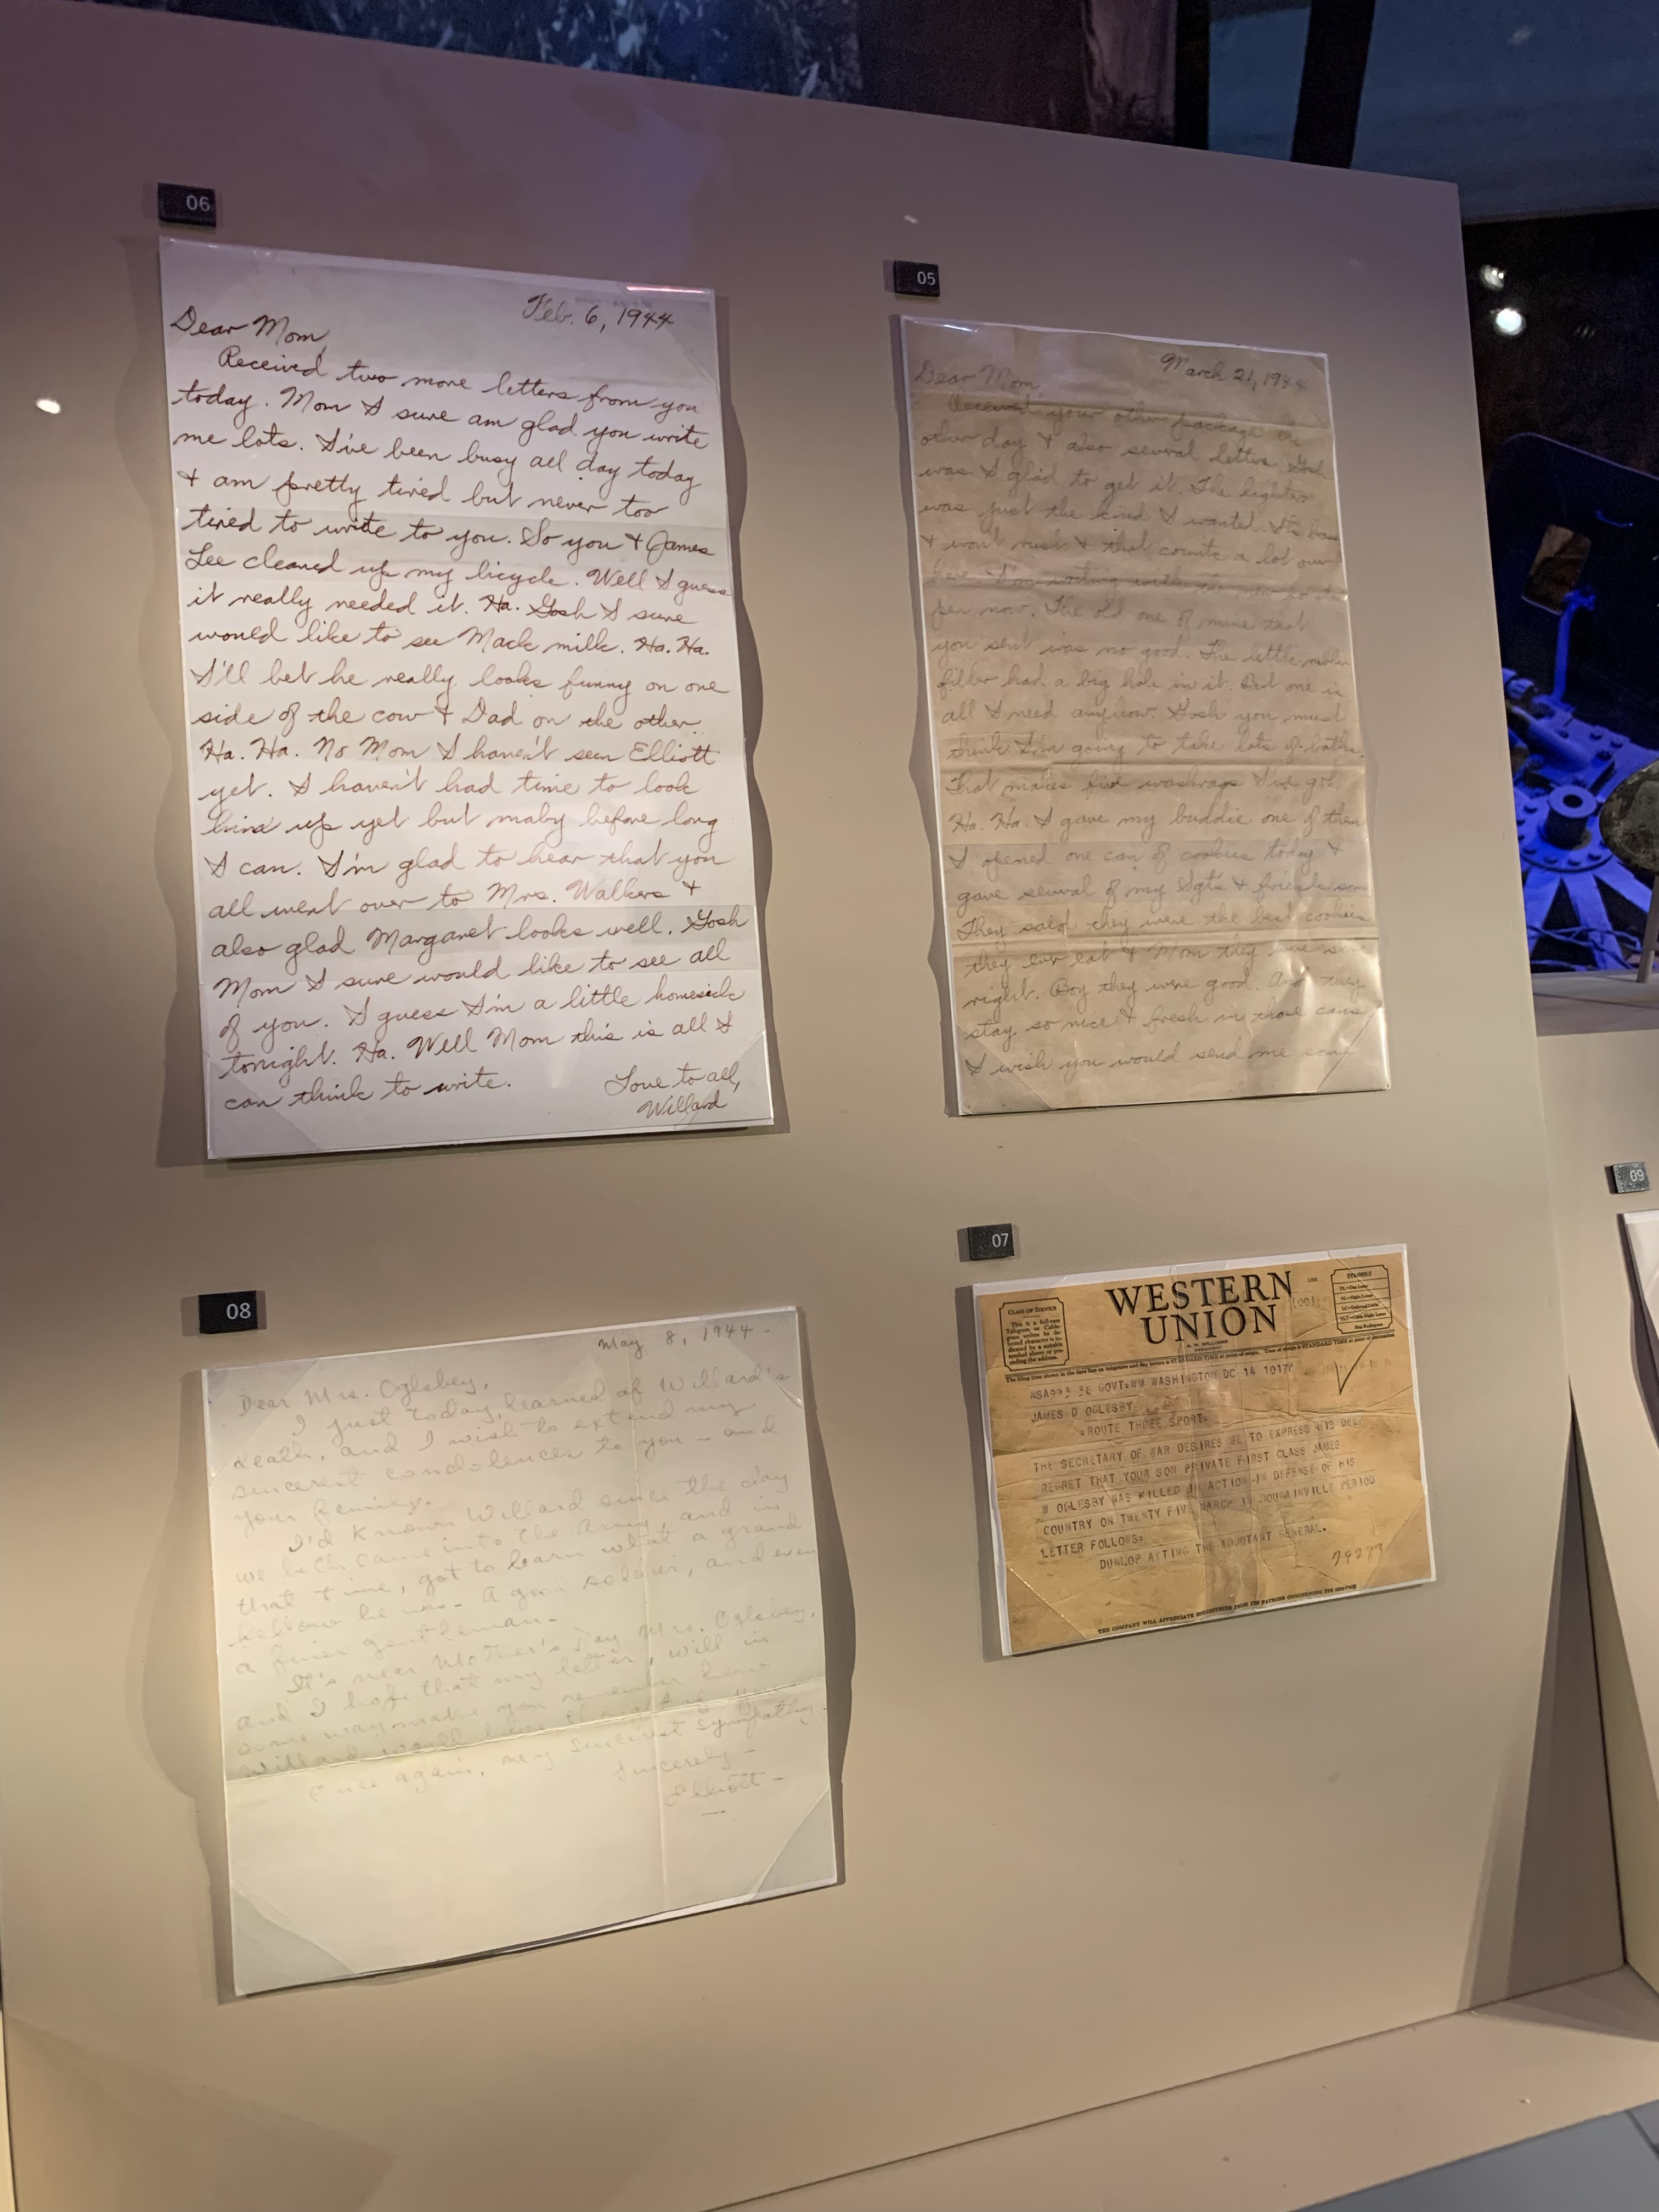 06
Feb. 6, 1944
Dear Mom,
Received two more letters from you
today. Mom I sure am glad you write
me lots. I've been busy all day today
& am pretty tired but never too
tired to write to you. So you & James
Lee cleaned up my bicycle. Well I guess
it really needed it. Ha. Gosh I sure
would like to see Mack milk. Ha. Ha.
I'll bet he really looks funny on one
side of the cow & Dad on the other.
Ha. Ha. No Mom I haven't seen Elliott
yet. I haven't had time to look
him up yet but maby before long
I can. I'm glad to hear that you
all went over to Mrs. Walkers &
also glad Margaret looks well. Gosh
Mom I sure would like to see all
of you. I guess I'm a little homesick
tonight. Ha. Well Mom this is all I
can think to write.
Love to all,
Willard
05
March 21, 1944
Dear Mom,
Received your other package the
other day & also several letters. Gosh
was I glad to get it. The lighter
was just the kind I wanted. It's
& won't rust & that counts a lot over
here. I'm writing with the
pen now. The old one of mine that
you sent was no good. The little rubber
filler had a big hole in it. But one is
all I need anyhow. Gosh you must
think I'm going to take lots of baths.
That makes five washrags I've got.
Ha. Ha. I gave my buddie one of them
I opened one can of cookies today &
gave several of my Sgts & friends some
They said they were the best cookies
they ever eat & Mom they were sure
right. Boy they were good. And they
stay so nice & fresh in those cans
I wish you would send me some
08
May 8, 1944-
Dear Mrs. Oglsbey,
I just today, learned of Willard's
death, and I wish to extend my
sincerest condolences to you - and
your family.
I'd known Willard since the day
we both came into the Army, and in
that time, got to learn what a grand
fellow he was- A good soldier, and even
a finer gentleman-
It's near Mother's Day Mrs. Oglsbey,
and I hope that my letter, will in
some way make you remember how
Willard would have
Once again, my sincerest sympathy-
Sincerely-
Elliott-
07
CLASS OF SERVICE
This is a full-rate
Telegram or Cable-
gram unless its de-
ferred character is in-
dicated by a suitable
symbol above or pre-
ceding the address.
WESTERN
UNION
A. N. WILLIAMS
PRESIDENT
1201
(00)
SYMBOLS
DL=Day Letter
NL=Night Letter
LC=Deferred Cable
NLT=Cable Night Letter
Ship Radiogram
The filing time shown in the date line on telegrams and day letters is STANDARD TIME at point of origin. Time of receipt is STANDARD TIME at point of destination
WSA993 36 GOVT=WM WASHINGTON DC 14 1017P
JAMES D OGLESBY
=ROUTE THREE SPORT=
THE SECRETARY OF WAR DESIRES ME TO EXPRESS HIS DEEP
REGRET THAT YOUR SON PRIVATE FIRST CLASS JAMES
W OGLESBY WAS KILLED IN ACTION IN DEFENSE OF HIS
COUNTRY ON TWENTY FIVE MARCH IN BOUGAINVILLE PERIOD
LETTER FOLLOWS=
DUNLOP ACTING THE ADJUTANT GENERAL.
THE COMPANY WILL APPRECIATE SUGGESTIONS FROM ITS PATRONS CONCERNING ITS SERVICE
09